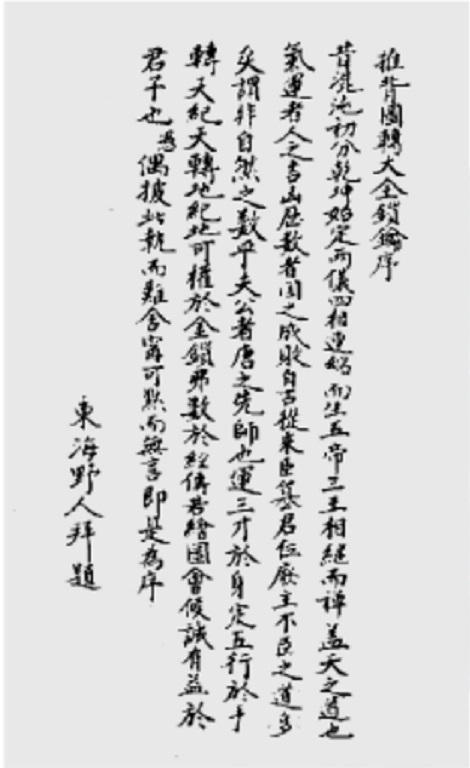 推背圖轉大金鎖鑰序
昔混沌初分乾坤始定兩儀四相運媧而生五帝三王相繼而禪蓋天之道也
氣運者人之吉凶歷數者国之成敗自古從來臣篡君位廢主不臣之道多
矣謂非自然之數乎夫公者唐之先師也運三才於身定五行於手
轉天紀天轉地紀地可權於金鎖弗數於經傳若繪圖會候誠有益於
君子也愚偶披此執而難舍寧可默而無言即是為序
東海野人拜題